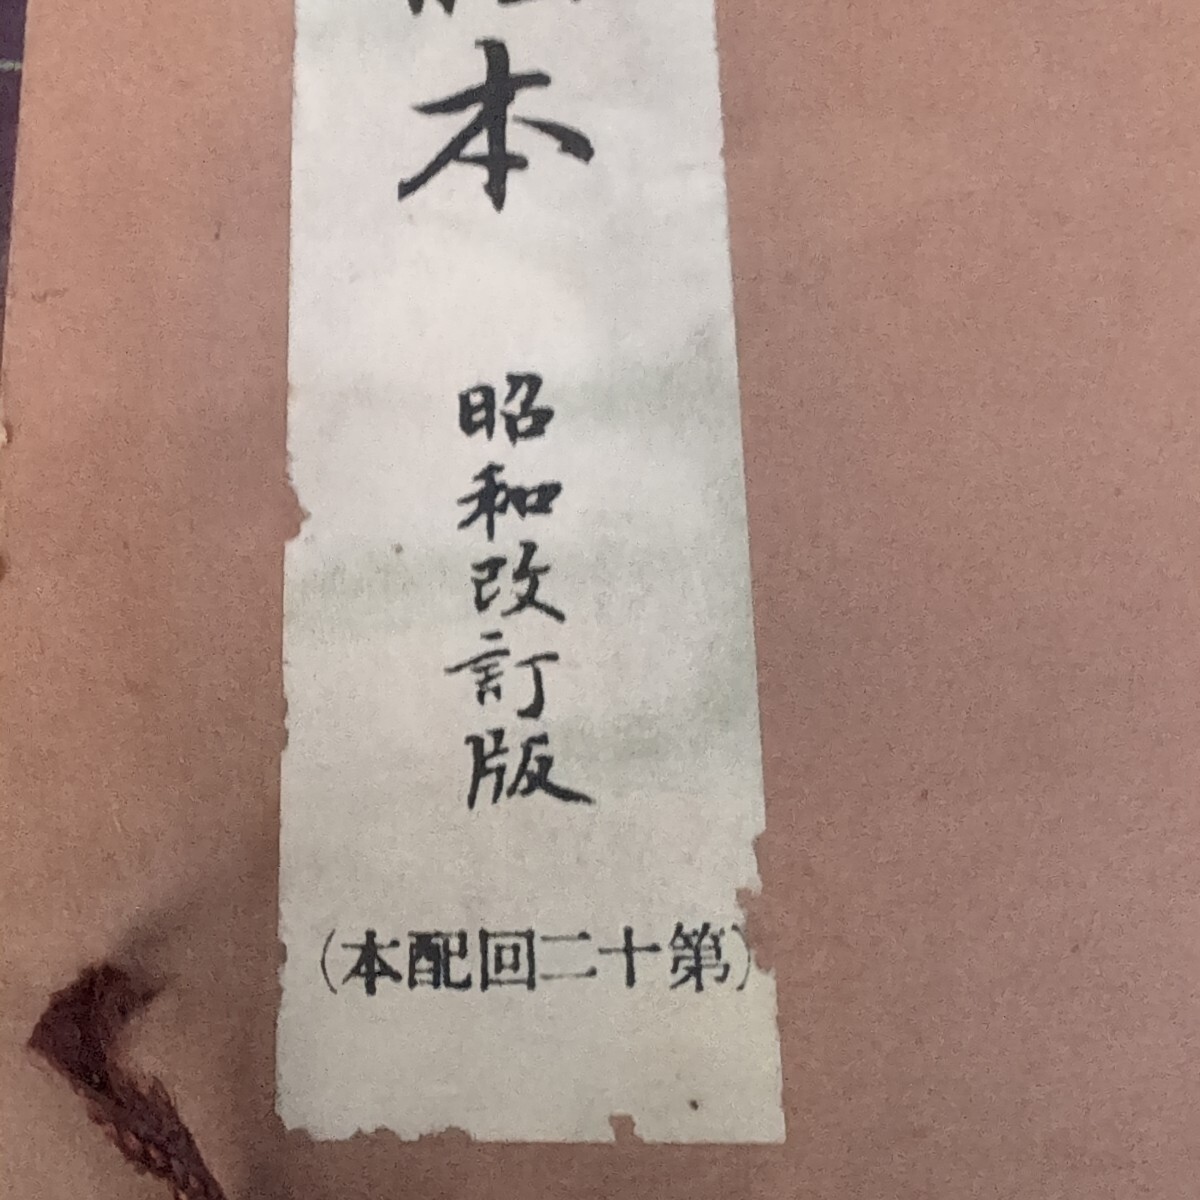 本
昭和改訂版
(本配回二十第)